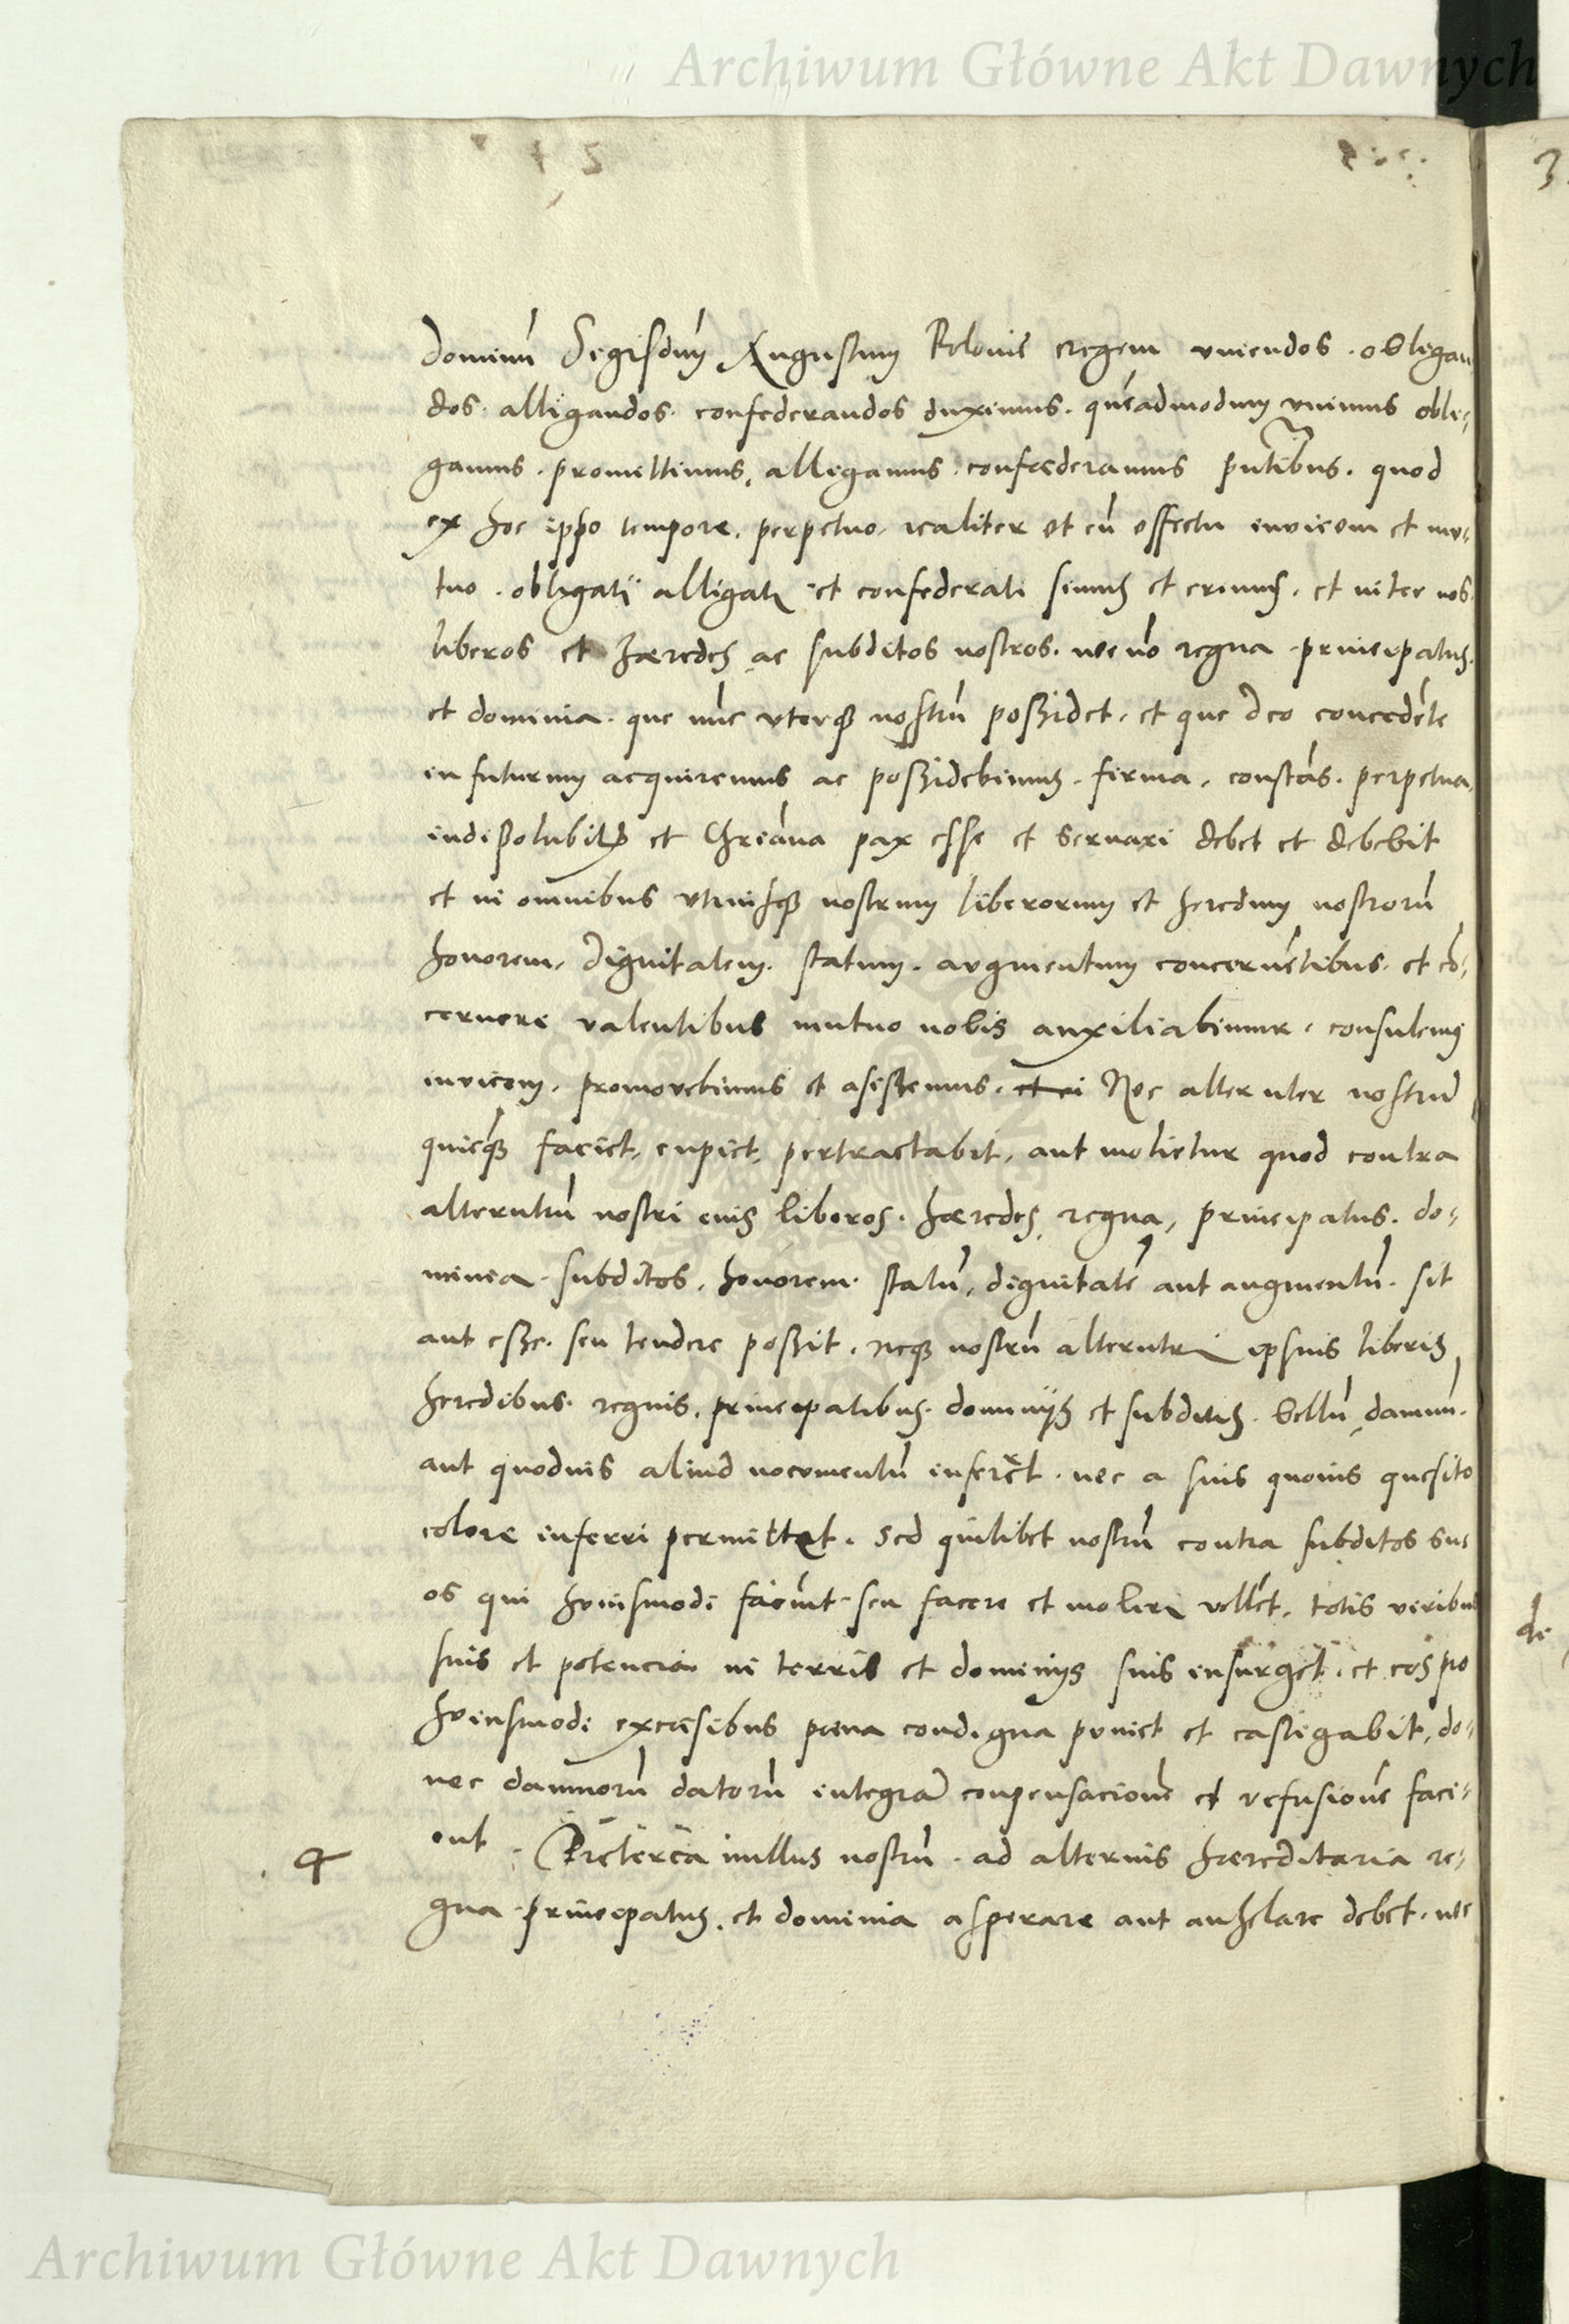 Archiwum Główne Akt Dawnych
dominũ Segisdũ Augustum Polonie regem uniendos . obligan
dos . alligandos . confederandos duximus . quẽadmodum vnimus obli-
gamus . promittimus, alligamus . confæderamus pñtibus . quod
ex hoc ipso tempore, perpetuo, realiter et cũ effectu invicem et mu-
tuo . obligati alligati et confederati simus et erimus . et inter nos
liberos et hæredes ac subditos nostros . nec nõ regna . principatus .
et dominia . que nũc uterq nostrũ possidet . et que deo concedẽte
in futurum acquiremus ac possidebimus . firma, constãs . perpetua,
indissolubilis et Chriãna pax esse et servari debet et debebit
et in omnibus utriusq nostrum liberorum et heredum nostrorũ
honorem, dignitatem . statum . augmentum concernẽtibus . et cõ-
cernere valentibus mutuo nobis auxiliabimur . consulemus
invicem . promovebimus et asistemus . et ei Nec alteruter nostrũ
quicq faciet, cupiet, pertractabit, aut molietur quod contra
alterutrũ nostri eius liberos . hæredes, regna, principatus . do-
minia . subditos, honorem . statũ, dignitatẽ aut augmentũ . sit
aut esse . seu tendere possit . neq nostrũ alterutri ipsius liberis
heredibus . regnis . principatibus . dominijs et subditis . bellũ, damnũ .
aut quodvis aliud nocumentũ inferet . nec a suis quovis quesito
colore inferri permittet . sed quilibet nostrũ contra subditos su
os qui huiusmodi faciẽt . seu facere et moliri vellẽt, totis viribus
suis et potencia in terris et dominijs suis insurget . et eos pro
huiusmodi excæsibus pœna condigna puniet et castigabit, do-
nec damnorũ datorũ integrã conpensacionẽ et refusionẽ faci-
ent . Præterea nullus nostrũ . ad alterius hæreditaria re-
gna . principatus . et dominia asperare aut anhelare debet . nec
3
de
Archiwum Główne Akt Dawnych